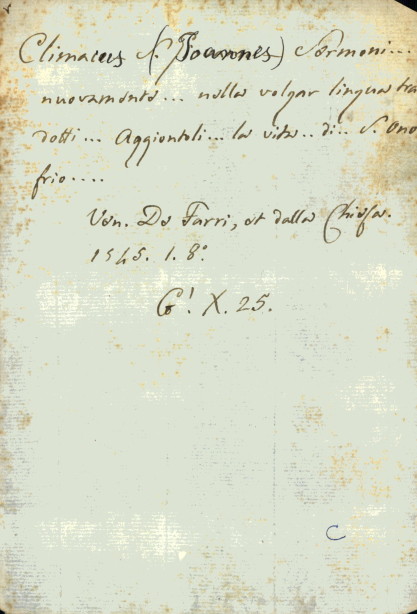 Climacus S. (Joannes) Sermoni...
nuovamente... nella volgar lingua tra
dotti... Aggiontoli... la vita.. di.. S. Ono
frio....
Ven. De Farri, et dalla Chiesa.
1545. 1. 8°.
G! X. 25.
C